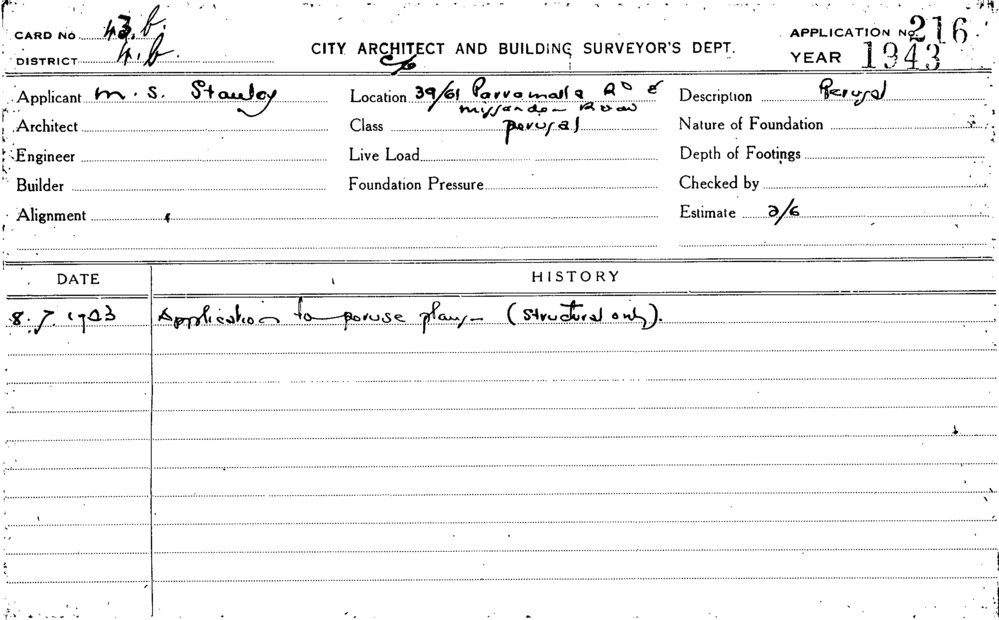 CARD No 43.b.
DISTRICT 4.b.
CITY ARCHITECT AND BUILDING SURVEYOR'S DEPT.
APPLICATION No. 216
YEAR 1943
Applicant M. S. Stanley
Location 39/61 Parramatta Rd &
c/o Missenden Road
Description Perusal
Architect
Class perusal
Nature of Foundation
Engineer
Live Load
Depth of Footings
Builder
Foundation Pressure
Checked by
Alignment
Estimate 2/6
DATE HISTORY
8.7.1943 Application to peruse plans (structural only).